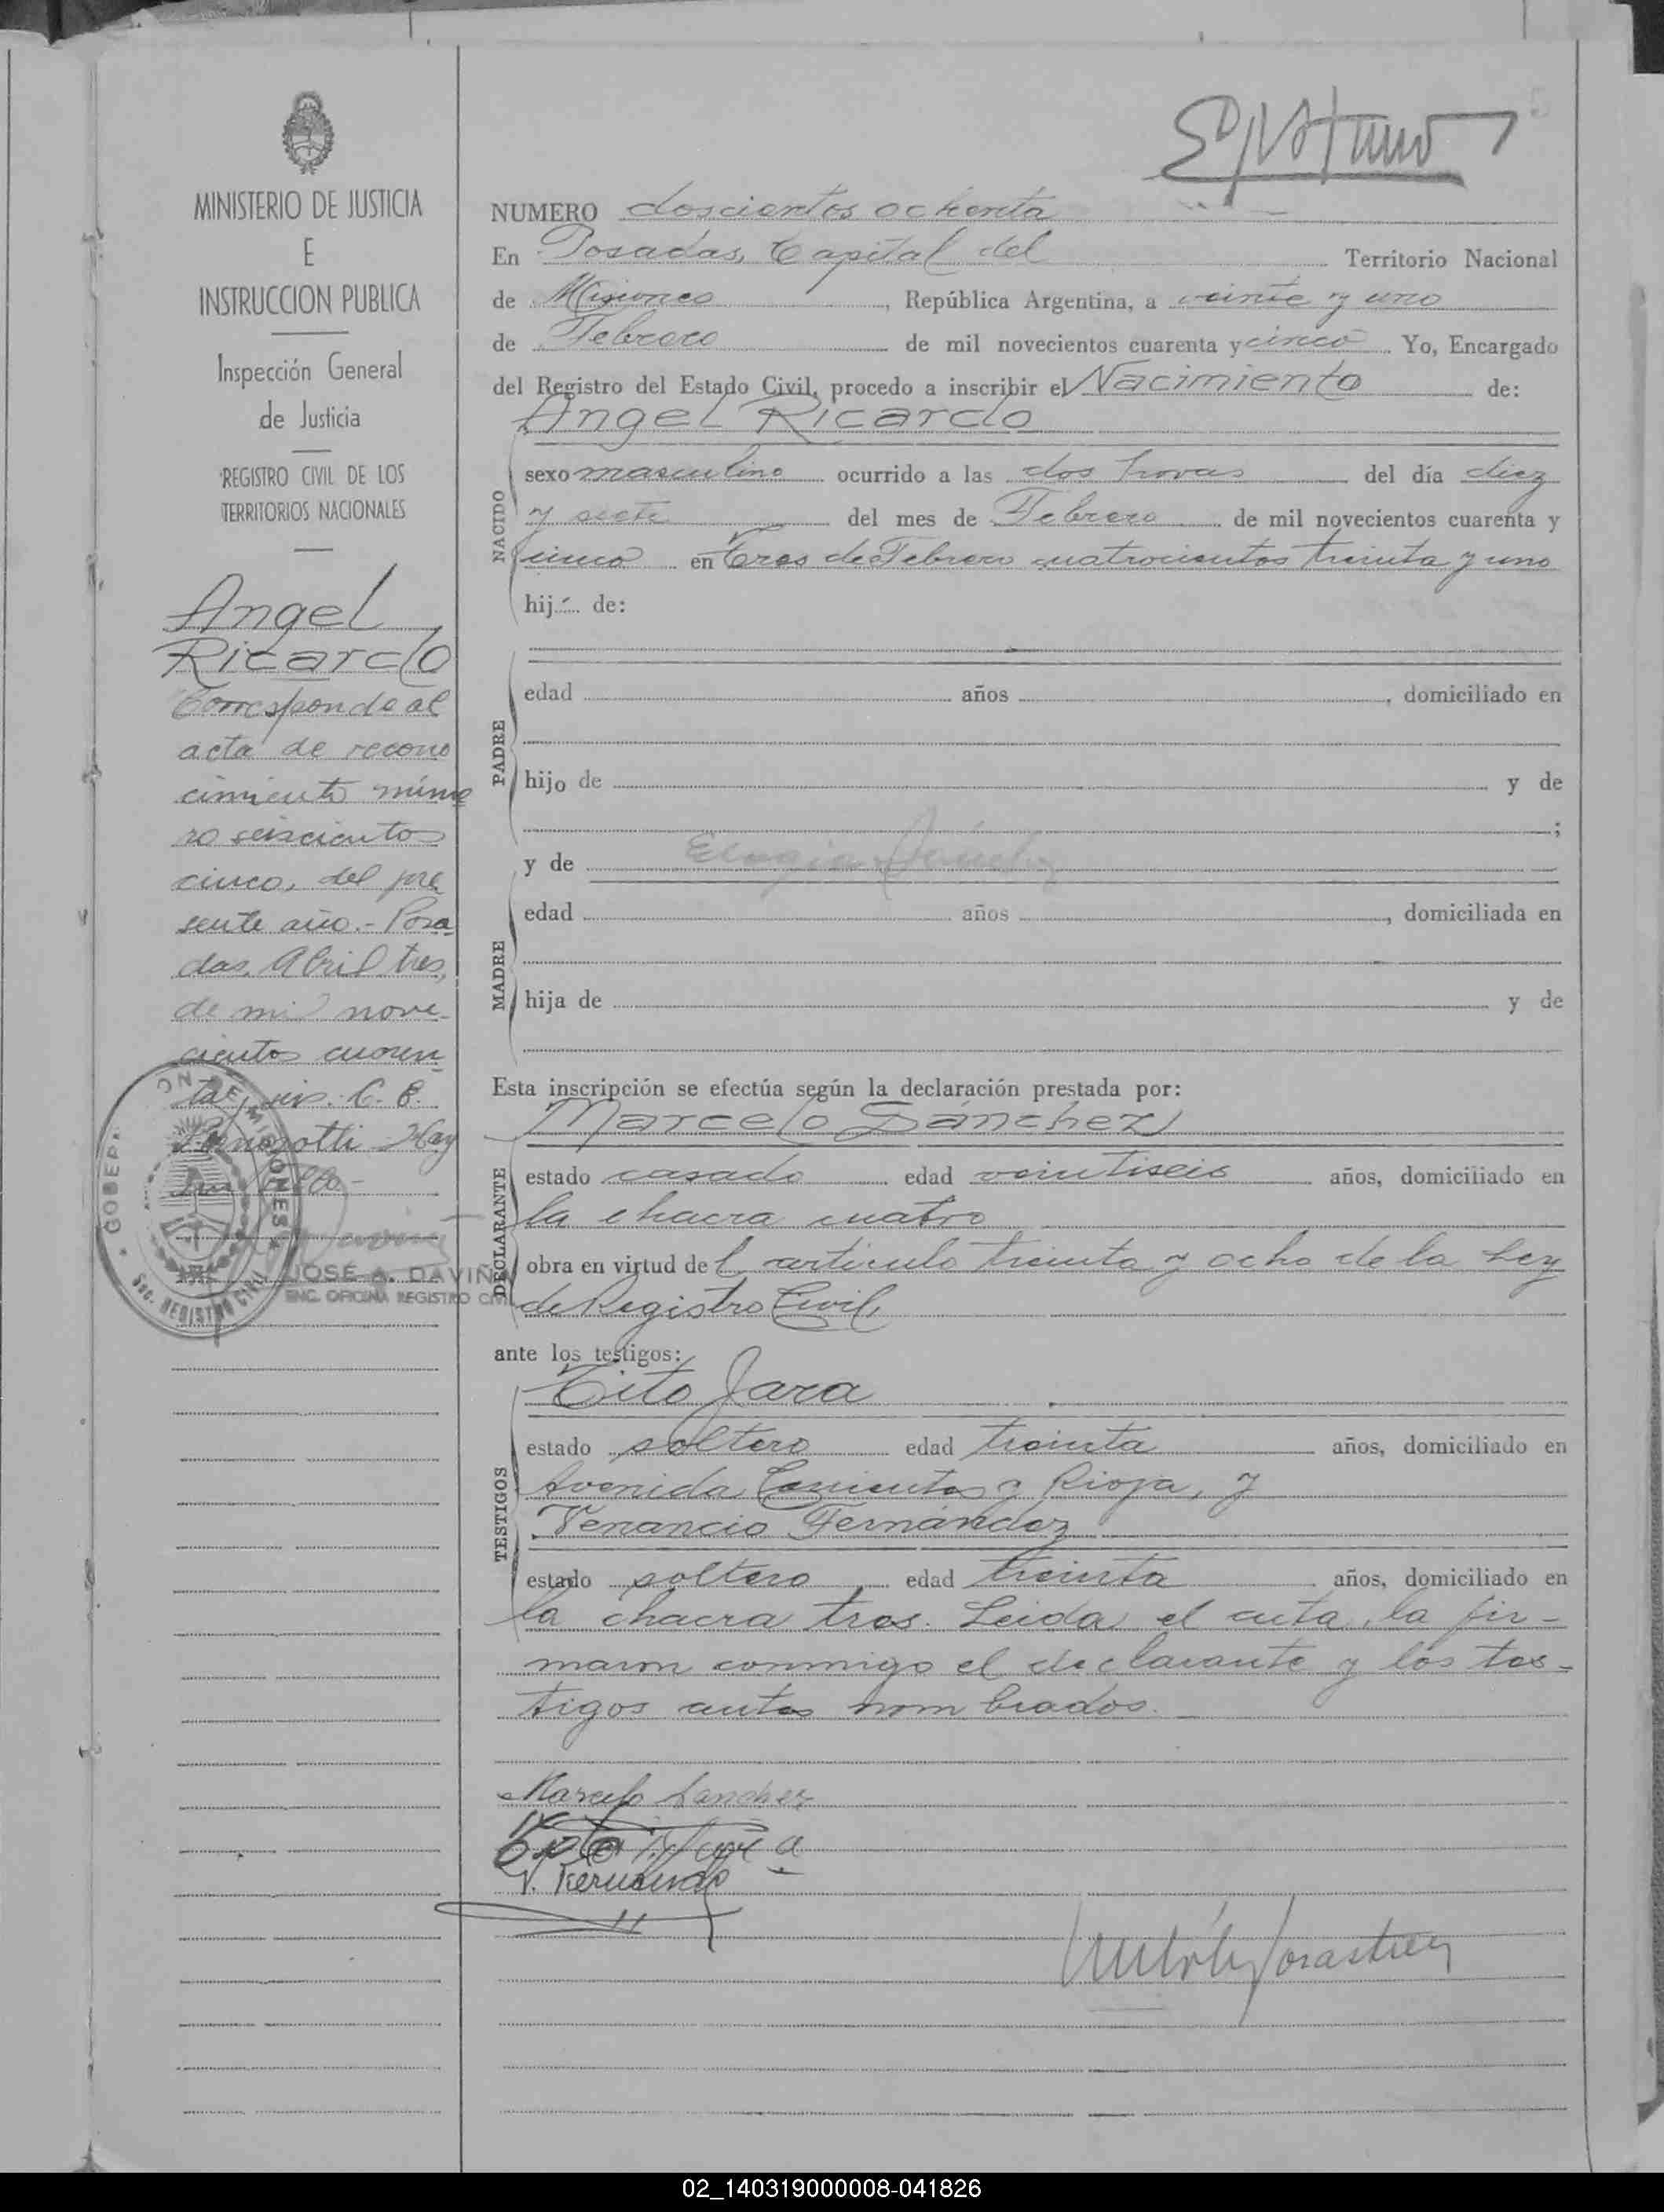 MINISTERIO DE JUSTICIA
E
INSTRUCCION PUBLICA
Inspección General
de Justicia
REGISTRO CIVIL DE LOS
TERRITORIOS NACIONALES
Angel
Ricardo
Corresponde al
acta de recono
cimiento núme
ro seiscientos
cinco, del pre
sente año.- Posa
das, Abril tres,
de mil nove-
cientos cuaren
ta y C. B.
JOSÉ A. DAVIÑA
ENC. OFICINA REGISTRO CIVIL
GOBERNACION DE MISIONES
REGISTRO CIVIL
NUMERO doscientos ochenta
En Posadas, Capital del Territorio Nacional
de Misiones, República Argentina, a veinte y uno
de Febrero de mil novecientos cuarenta y cinco Yo, Encargado
del Registro del Estado Civil, procedo a inscribir el Nacimiento de:
Angel Ricardo
NACIDO
sexo masculino ocurrido a las dos horas del día diez
y siete del mes de Febrero de mil novecientos cuarenta y
cinco en Tres de Febrero cuatrocientos treinta y uno
hij de:
PADRE
edad años , domiciliado en
hijo de y de
;
y de Sánchez
MADRE
edad años , domiciliada en
hija de y de
Esta inscripción se efectúa según la declaración prestada por:
Marcelo Sánchez
DECLARANTE
estado casado edad veintiseis años, domiciliado en
la chacra cuatro
obra en virtud del articulo treinta y ocho de la Ley
de Registro Civil,
ante los testigos:
Tito Jara
TESTIGOS
estado soltero edad treinta años, domiciliado en
Avenida Corrientes y Rioja, y
Venancio Fernández
estado soltero edad treinta años, domiciliado en
la chacra tres. Leida el acta, la fir-
maron conmigo el declarante y los tes-
tigos antes nombrados.
Marcelo Sanchez
V. Fernandez
02_140319000008-041826